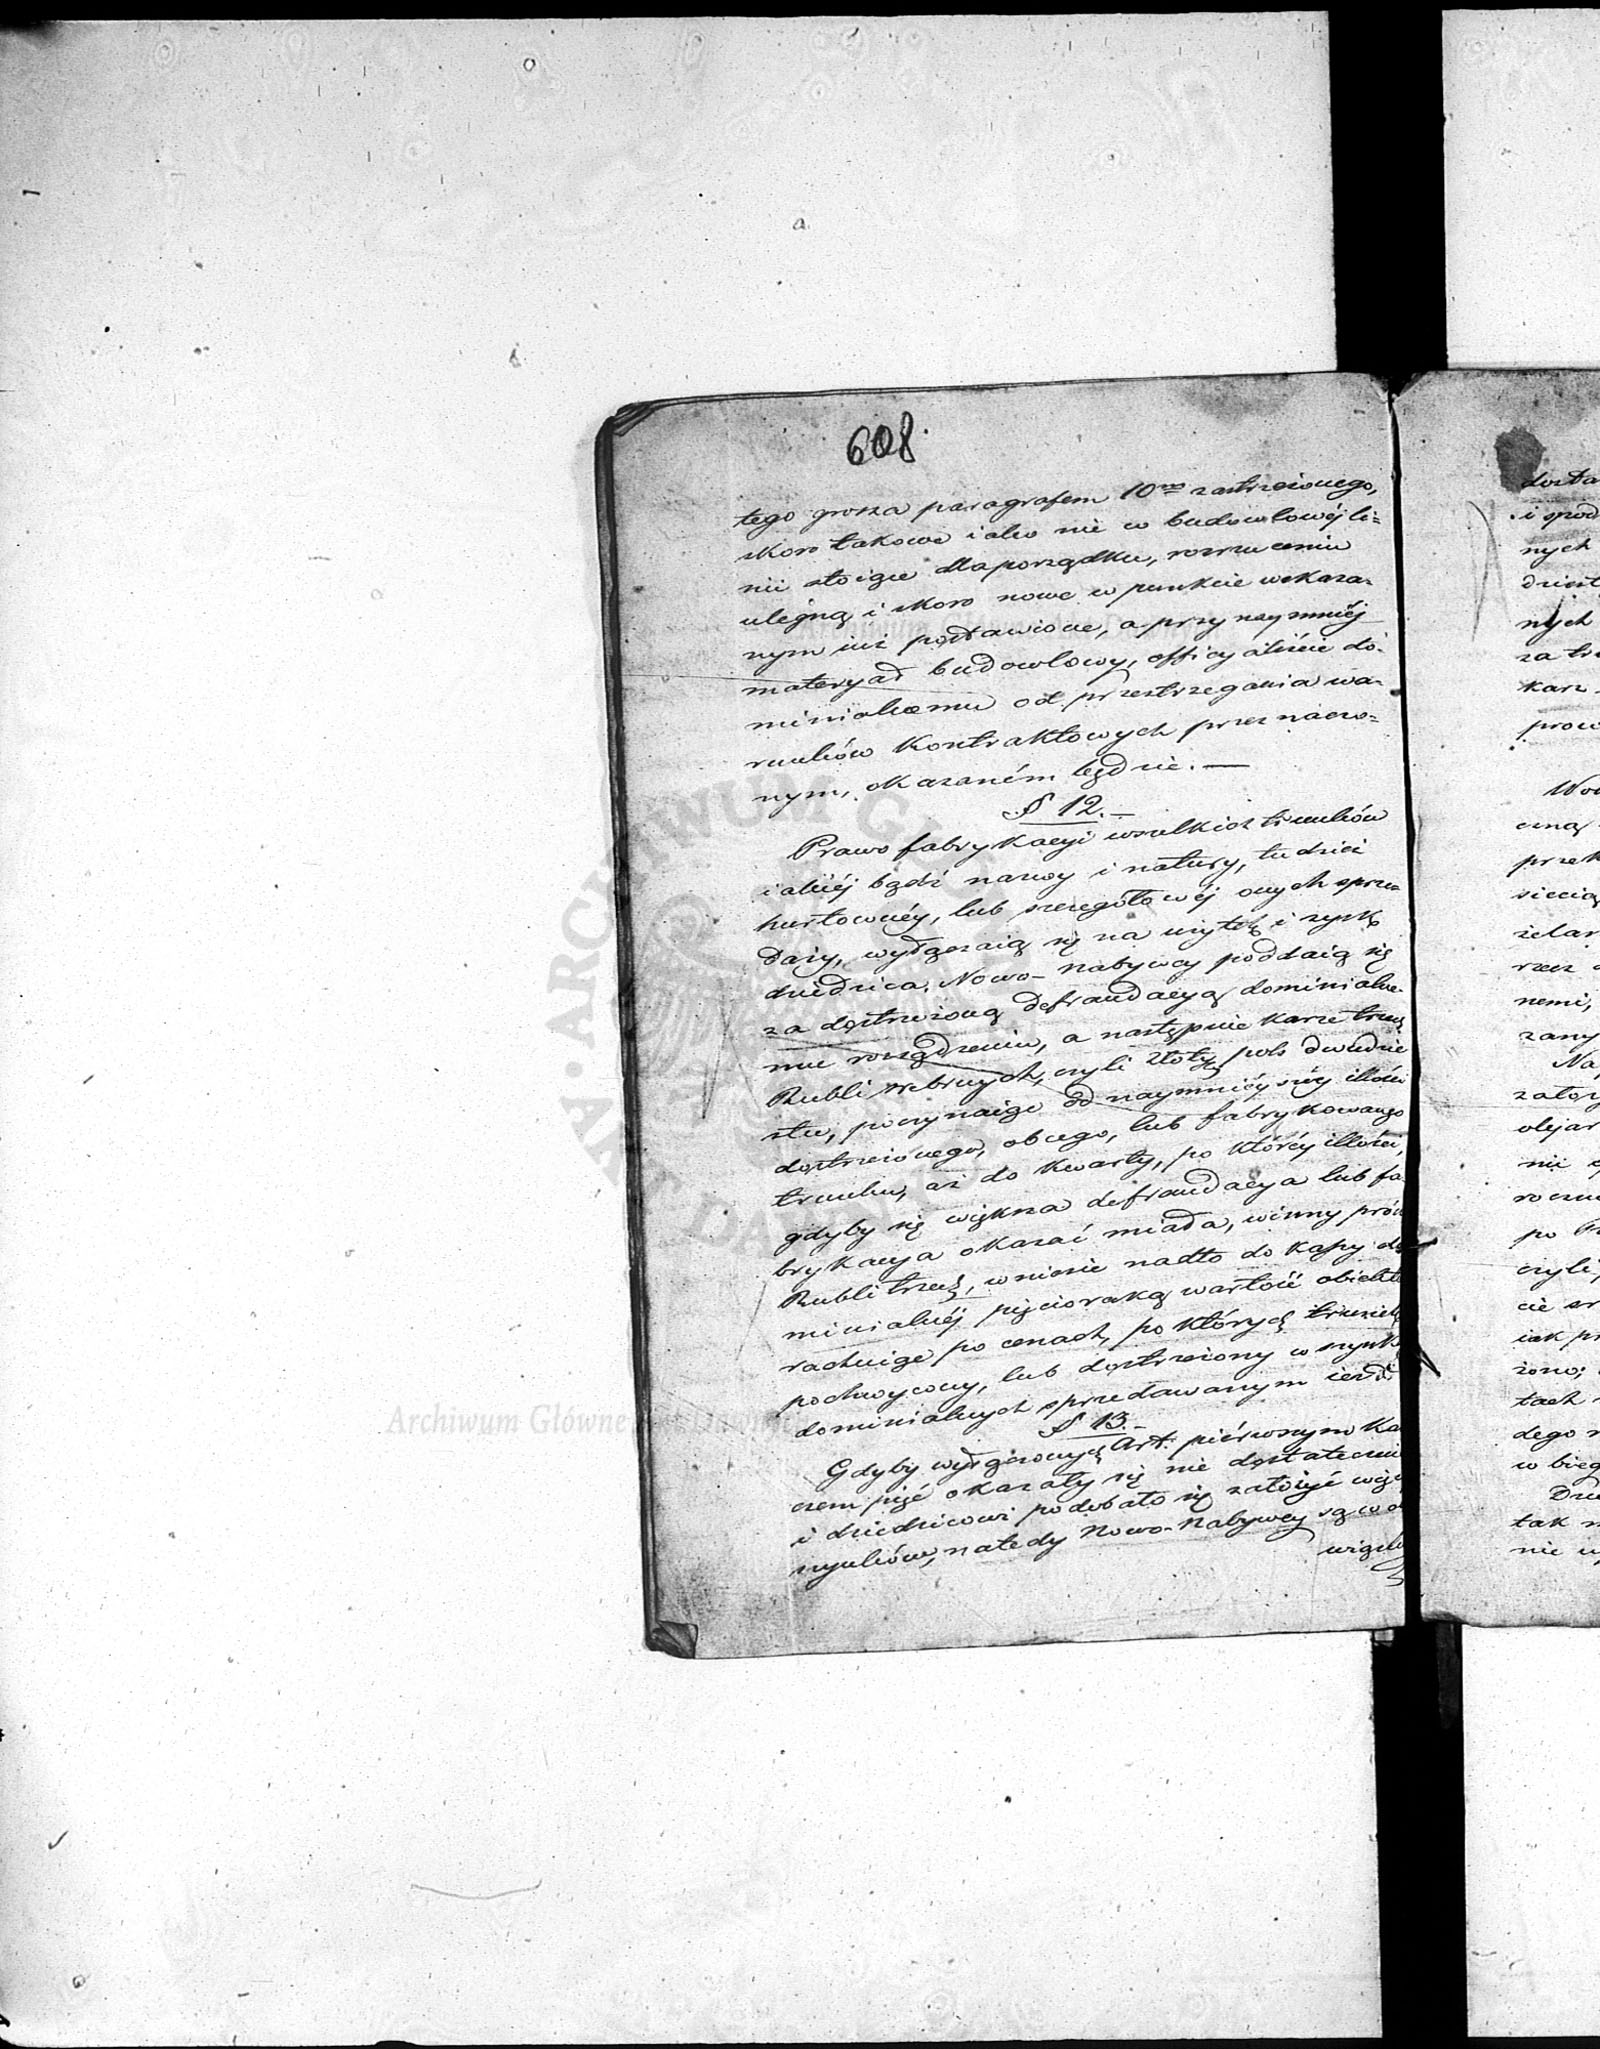 608.
tego grosza paragrafem 10mo zastrzeżonego,
skoro takowe iako nie w budowlowéj li=
nii stoiące dla porządku, rozrzuceniu
ulegną i skoro nowe w punkcie wskaza=
nym iuż postawione, a przynaymniéj
materyał budowlowy, officyaliście do=
minialnemu od przestrzegania wa=
runków Kontraktowych przeznaczo=
nym, okazaném będzie. —
§ 12. —
Prawo fabrykacyi wszelkich trunków
iakiéj bądź nazwy i natury, tudzież
hurtownéy, lub szczegółowéj onych sprze=
daży, wyłączaią się na użytek i zysk
dziedzica. Nowo-nabywcy poddaią się
za dostrzeżoną defraudacyą dominialne=
mu rozsądzeniu, a następnie karze trzech
Rubli srebrnych, czyli złotych pols dwudzie
stu, poczynaiąc od naymniéyszéy illości
dostrzeżonego, obcego, lub fabrykowanego
trunku, aż do kwarty, po któréy illości,
gdyby się większa defraudacya lub fa=
brykacya okazać miała, winny prócz
Rubli trzech, wniesie nadto do kassy do
minialnéj pięcioraką wartość obiektu
rachuiąc po cenach, po których trunek
pochwycony, lub dostrzeżony w szynka
dominialnych sprzedawanym iest.
§ 13. —
Gdyby wyłączonych Art. piérwszym Ka
czem pięć okazały się nie dostateczne
i dziedzicowi podobało się założyć więc
szynków, natedy Nowo-Nabywcy są w o
wiązku
dosta
i spod
nych
dziest
nych
za tr
karz
prow
Wo
czną
przek
siecią
żelar
rzecz
nemi,
zany
Na
zatoz
olejar
nii
roczn
po
czyli
cie sr
iak pr
żono;
tach
dego
w bieg
Dzie
tak n
nie u
Archiwum Główne Akt Dawnych